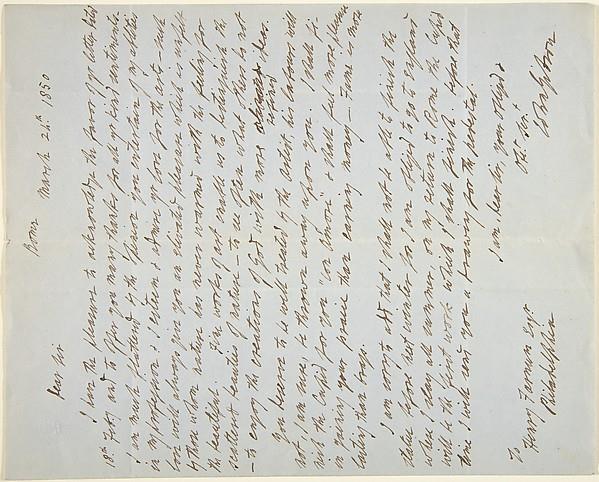 Rome March 24th 1850
Dear Sir
I have the pleasure to acknowledge the favor of yr letter dated
18th Feby and to offer you many thanks for all yr kind sentiments.
I am much flattered by the opinion you entertain of my abilities
in my profession & I esteem & admire yr love for the arts - such
love will always give you an elevated pleasure which is unfelt
by those whom nature has never warmed with the feeling for
the beautiful. Fine works of art enable us to distinguish the
scattered beauties of nature - to see often when there is not
- to enjoy the creations of God with more refined ideas.
You deserve to be well treated by the Artist, his labours will
not, I am sure, be thrown away upon you. I shall fi-
nish the Cupid for you "con amore" & shall feel more pleasure
in gaining your praise than earning money - Fame is more
lasting than rags.
I am sorry to add that I shall not be able to finish the
statue before next winter for I am obliged to go to England
where I stay all summer, on my return to Rome the Cupid
will be the first work which I shall finish. Before that
time I will send you a drawing for the pedestal.
I am, dear Sir, your obliged &
Obt Sert
To
Henry Farnum Esqr
Philadelphia